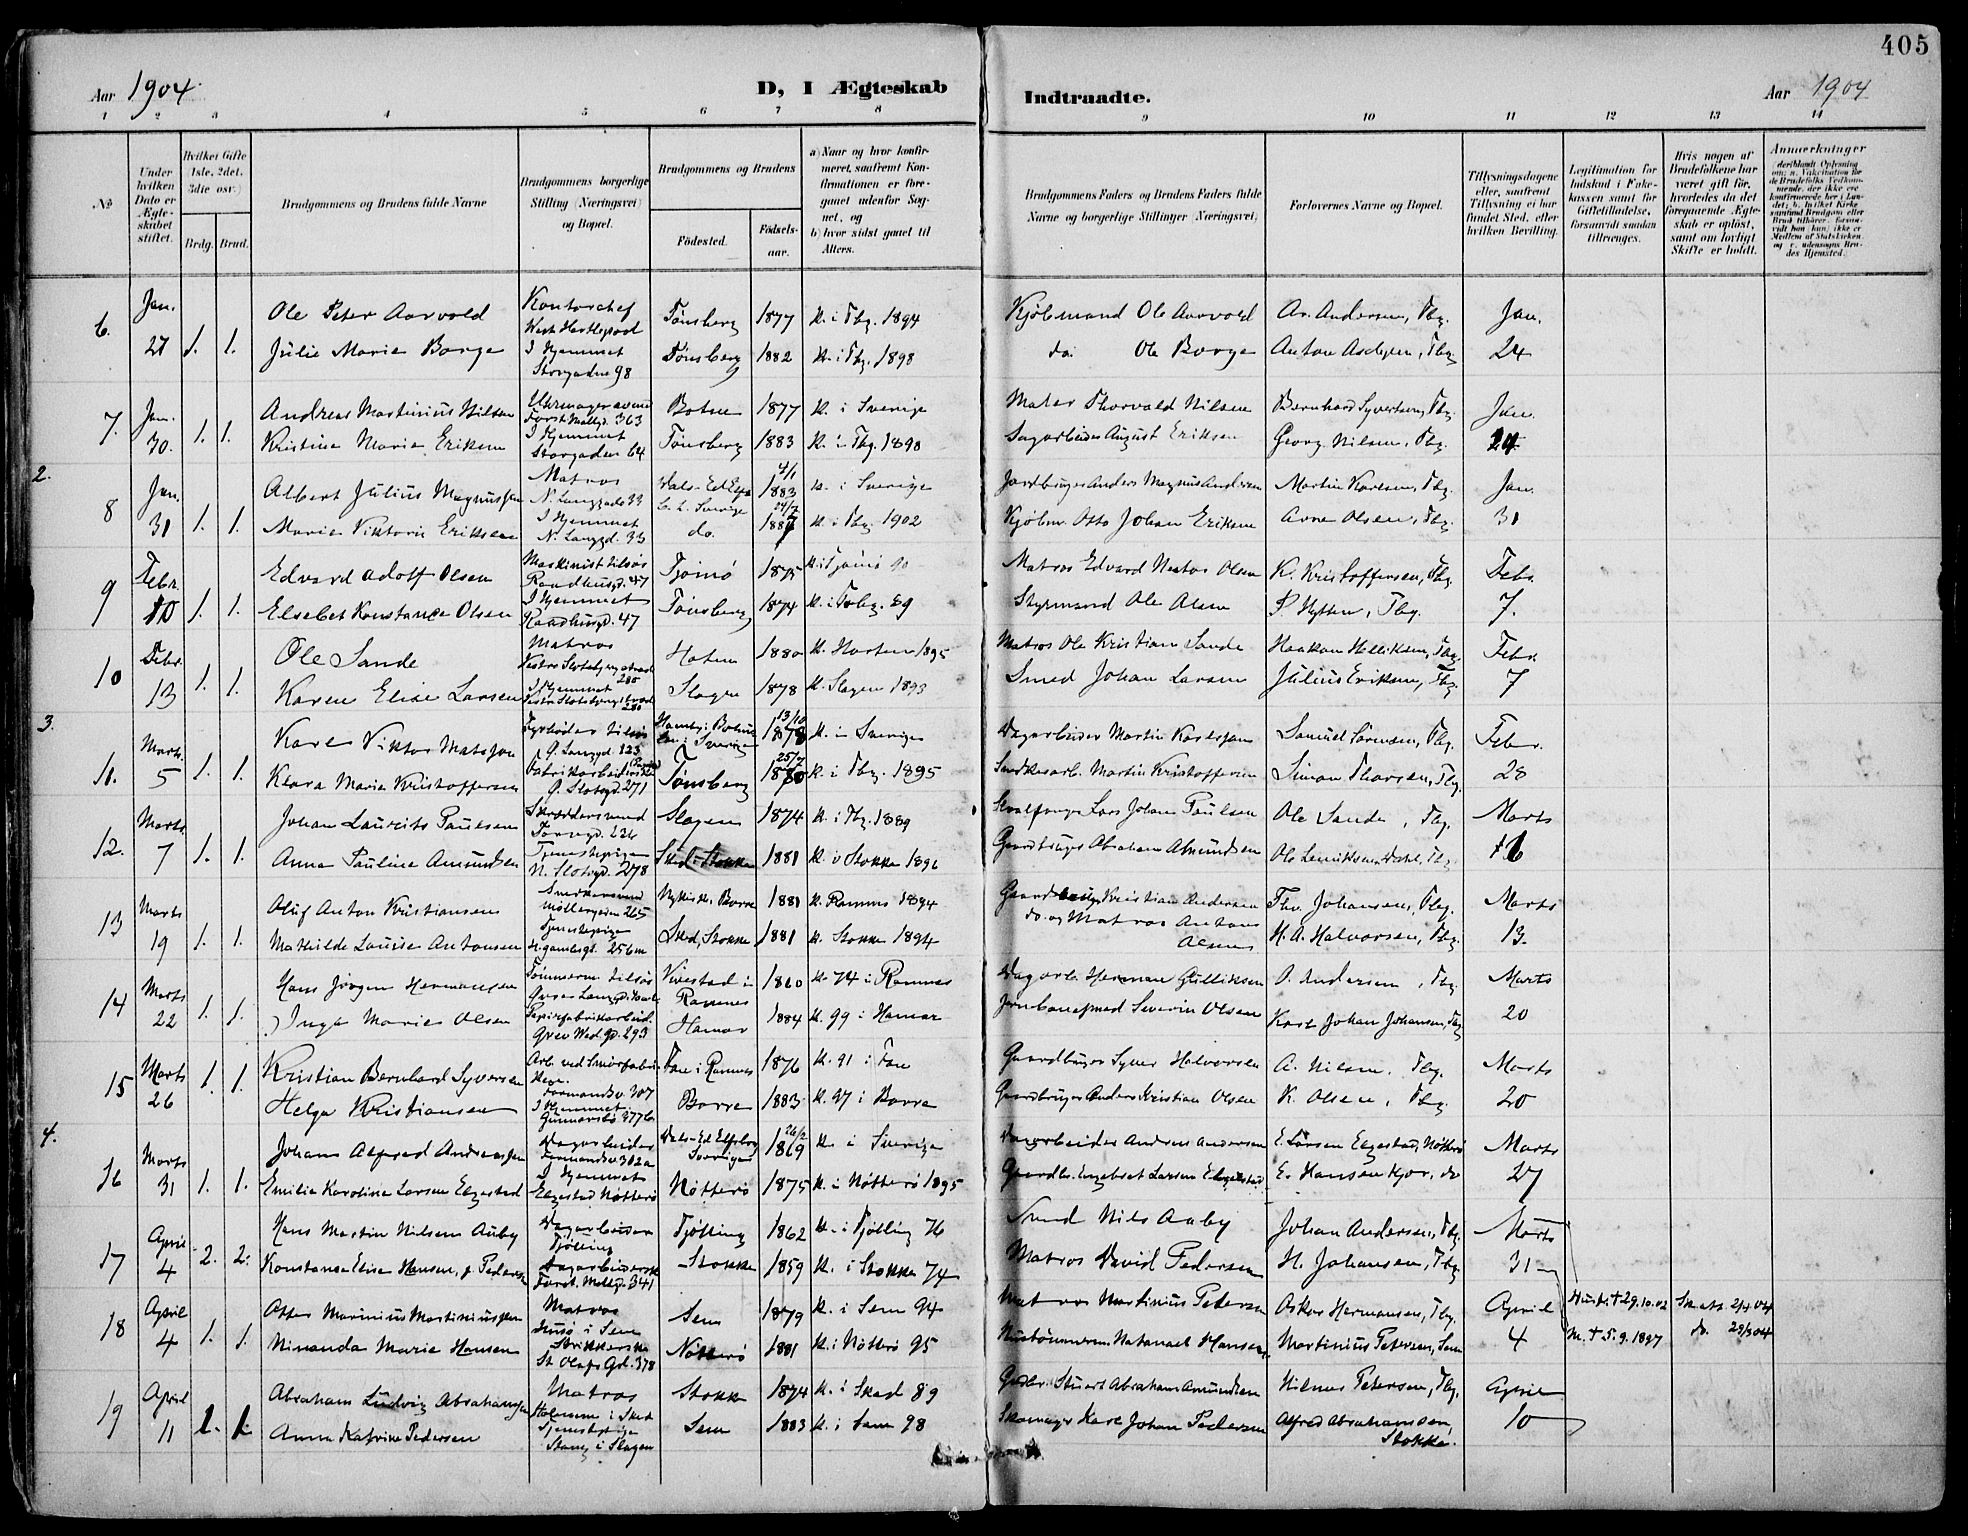 405
Aar 1904.
D, I Ægteskab
Indtraadte.
Aar 1904
1 2 3 4 5 6 7 8 9 10 11 12 13 14
№
Under hvilken Dato er Ægteskabet stiftet.
Hvilket Gifte 1ste, 2det, 3die osv.)
Brdg. Brud.
Brudgommens og Brudens fulde Navne
Brudgommens borgerlige Stilling (Næringsvei) og Bopæl.
Brudgommens og Brudens
Födested.
Födselsaar.
a) Naar og hvor konfirmeret, saafremt Konfirmationen er foregaaet udenfor Sognet, og
b) hvor sidst gaaet til Alters.
Brudgommens Faders og Brudens Faders fulde Navne og borgerlige Stillinger (Næringsvei)
Forlovernes Navne og Bopæl.
Tillysningsdagene eller, saafremt Tillysning ei har fundet Sted, efter hvilken Bevilling.
Legitimation for Indskud i Enkekassen samt for Giftetilladelse, forsaavidt saadan tiltrænges.
Hvis nogen af Brudefolkene har været gift för, hvorledes da det foregaaende Ægteskab er oplöst, samt om lovligt Skifte er holdt.
Anmærkninger
6. Jan. 27 1. 1.
Ole Peter Aarvold Kontorchef West Hartlepool Tönsberg 1877 k. i Tbg. 1894 Kjöbmand Ole Aarvold Ar. Andersen, Tbg. Jan.
Julie Marie Borge I Hjemmet Storgaden 98 Tönsberg 1882 k. i Tbg. 1898 do. Ole Borge Tbg. 24
7. Jan. 30. 1. 1.
Andreas Martinius Nilsen 363 Botne 1877 k. i Sverige Thorvald Nilsen Bernhard Syvertsen, Tbg. Jan.
Kristine Marie Eriksen I Hjemmet Storgaden 64 Tönsberg 1883 k. i Tbg. 1898 August Eriksen Georg Nilsen, Tbg. 24
2.
8 Jan. 31 1. 1.
Albert Julius Magnussen Matros N. Langgade 33 4/1 1883 k. i Sverige Jordbruger Anders Magnus Andersen Martin Karlsen, Tbg. Jan.
Marie Viktoria Eriksen I Hjemmet N. Langgd. 33 do. k. i Tbg. 1902 Kjöbm. Otto Johan Eriksen Arne Olsen, Tbg. 31
9 Febr. 10 1. 1.
Edvard Adolf Olsen Maskinist tilsös Raadhusgd. 47 Tjömö 1875 k. i Tjömö 90 Matros Edvard Olsen K. Kristoffersen, Tbg. Febr.
Elsebet Konstance Olsen I Hjemmet Raadhusgd. 47 Tönsberg 1874 k. i Tbg. 89 Styrmand Ole Olsen P. Hytten, Tbg. 7.
10 Febr. 13 1. 1.
Ole Sande Matros 280 1880 k. Horten 1895 Matros Ole Kristian Sande Haakon Helliksen, Tbg. Febr.
Karen Elise Larsen I Hjemmet 280 Slagen 1878 k. Slagen 1893 Smed Johan Larsen Julius Eriksen, Tbg. 7
3.
11. Marts 5 1. 1.
Karl Viktor Matsson Fyrböder tilsös Ö. Langgd. 123 i Sverige 13/10 1878 k. i Sverige Dagarbeider Martin Karlsson Samuel Sörensen, Tbg. Febr.
Klara Marie Kristoffersen Ö. Slotsgd. 271 Tönsberg 25/7 1880 k. i Tbg. 1895 Martin Kristoffersen Simon Thorsen, Tbg. 28
12. Marts 7 1. 1.
Johan Laurits Paulsen Skræddersvend 226 Slagen 1874 k. i Tbg. 1889 Hvalfanger Lars Johan Paulsen Ole Sande, Tbg. Marts
Anna Pauline Amundsen Tjenestepige N. Slotsgd. 278 Sked. Stokke 1881 k. i Stokke 1896 Gaardbruger Abraham Amundsen Ole Tbg. 6
13 Marts 19 1. 1.
Oluf Anton Kristiansen Snedkersvend 265 Borre 1881 k. Ramnes 1894 Kristian Andersen Thv. Johansen, Tbg. Marts
Mathilde Louise Antonsen Tjenestepige 256 m Sked, Stokke 1881 k. Stokke 1894 do. og Matros Anton Olsen H. A. Halvorsen, Tbg. 13.
14 Marts 22 1. 1.
Hans Jörgen Hermansen Tömmerm. tilsös Vivestad i Ramnes 1860 k. 74 i Ramnes Dagarb. Herman Gulliksen O. Andersen, Tbg. Marts
Inga Marie Olsen Papirfabrikarbeid. Grev Wed. gd. 293 Hamar 1884 k. 99 i Hamar Severin Olsen Karl Johan Johansen, Tbg. 20
15 Marts 26 1. 1.
Kristian Bernhard Syversen Arb. ved Smörfabrik 307 Fon i Ramnes 1876 k. 91 i Fon Gaardbruger Syver Halvorsen A. Nilsen, Tbg. Marts
Helga Kristiansen I Hjemmet Gunnarsbö 377 b Borre 1883 k. 97 i Borre Gaardbruger Anders Kristian Olsen K. Olsen, Tbg. 20
4.
16 Marts 31 1. 1.
Johan Alfred Andreassen Dagarbeider Farmandsv. 302 a Dals-Ed Elfsborg Sverige 26/2 1869 k. i Sverige Dagarbeider Andreas Andersen E. Larsen Elgestad, Nötterö Marts
Emilie Karoline Larsen Elgestad I Hjemmet Elgestad Nötterö Nötterö 1875 k. i Nötterö 1895 Gaardbr. Engebret Larsen Elgestad E. Hansen Kjær, do 27
17 April 4 2. 2.
Hans Martin Nilsen Auby Dagarbeider Tjölling Tjölling 1862 k. i Tjölling 76 Smed Nils Auby Johan Andersen, Tbg. Marts
Konstanse Elise Hansen, f. Pedersen Dagarbeiderske 341 Stokke 1859 k. i Stokke 74 Matros David Pedersen H. Johansen, Tbg. 31
Hustr. † 29.10.02 Sk. att. 2/4 04
M. † 5.9.1897 do. 29/3 04
18 April 4 1. 1.
Otto Marinius Martiniussen Matros Husö i Sem Sem 1879 k. i Sem 94 Matros Martinius Petersen Oskar Hermansen, Tbg. April
Minanda Marie Hansen Strikkerske St. Olafs Gd. 378 Nötterö 1881 k. i Nötterö 95 Natanael Hansen Martinius Petersen, Sem 4
19 April 11 1. 1.
Abraham Ludvig Abrahamsen Matros Stokke 1874 k. i Sked 89 Abraham Amundsen Hilmar Petersen, Tbg. April
Anna Katrine Pedersen Tjenestepige i Slagen Sem 1883 k. i Sem 98 Skomager Karl Johan Pedersen Alfred Abrahamsen, Stokke. 10